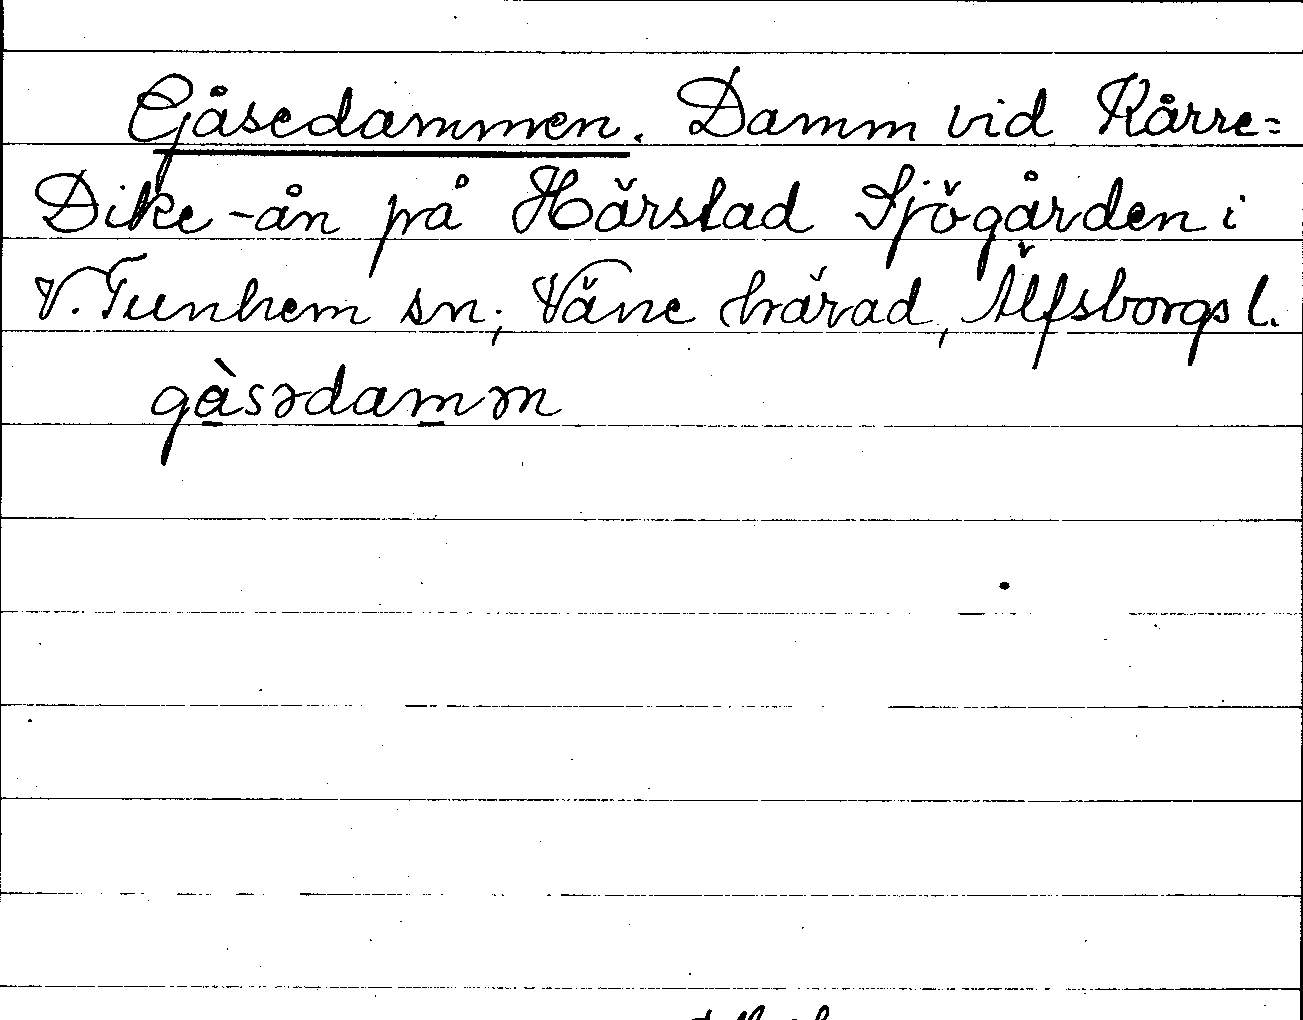 Gåsedammen. Damm vid Kårre=
Dike-ån på Härstad Sjögården i
V. Tunhem sn; Väne härad, Älfsborgs l.
gàsədamm